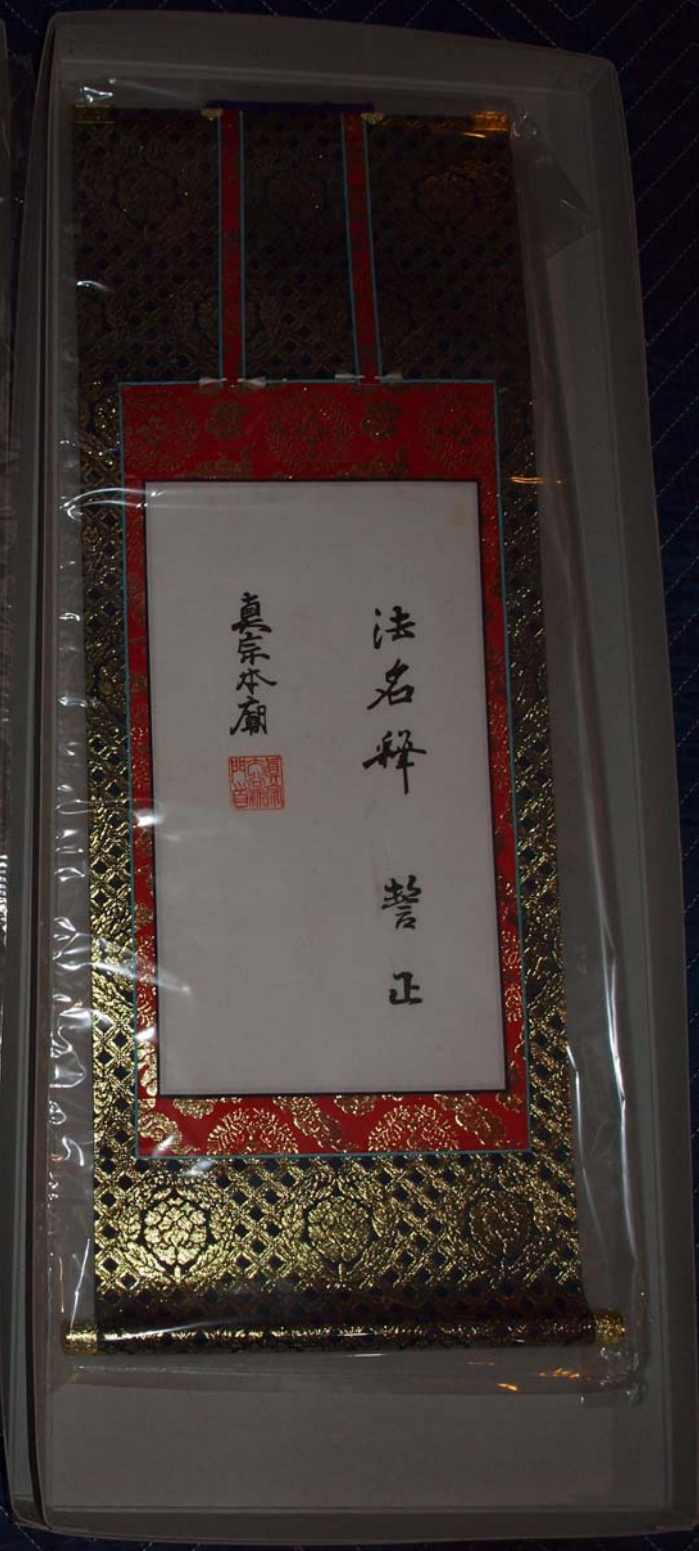 法名釋 誓正
真宗本廟